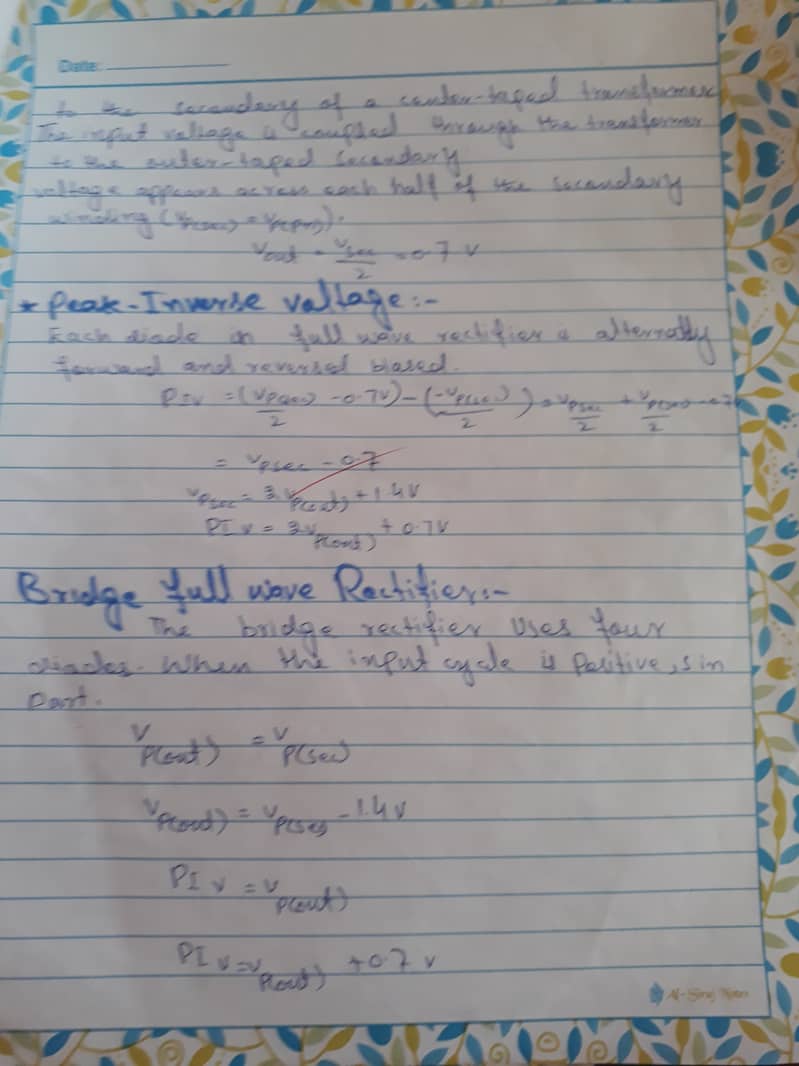 Date:
to the secondary of a center-taped transformer
The input voltage is coupled through the transformer
to the center-taped secondary
voltage appears across each half of the secondary
winding (Vp(sec) = Vp(pri)).
Vout = Vsec/2 - 0.7 V
* Peak-Inverse Valtage:-
Each diode in full wave rectifier is alternatly
forward and reversed biased.
PIV = (Vp(sec)/2 - 0.7V) - (-Vp(sec)/2) = Vpsec/2 + Vp(sec)/2 - 0.7
= Vpsec - 0.7
Vpsec = 2Vp(out) + 1.4V
PIV = 2Vp(out) + 0.7V
Bridge full wave Rectifier:-
The bridge rectifier uses four
diodes. When the input cycle is Positive, s in
Part.
Vp(out) = Vp(sec)
Vp(out) = Vp(sec) - 1.4V
PIV = Vp(out)
PIV = Vp(out) + 0.7 V
Al-Siraj Notes